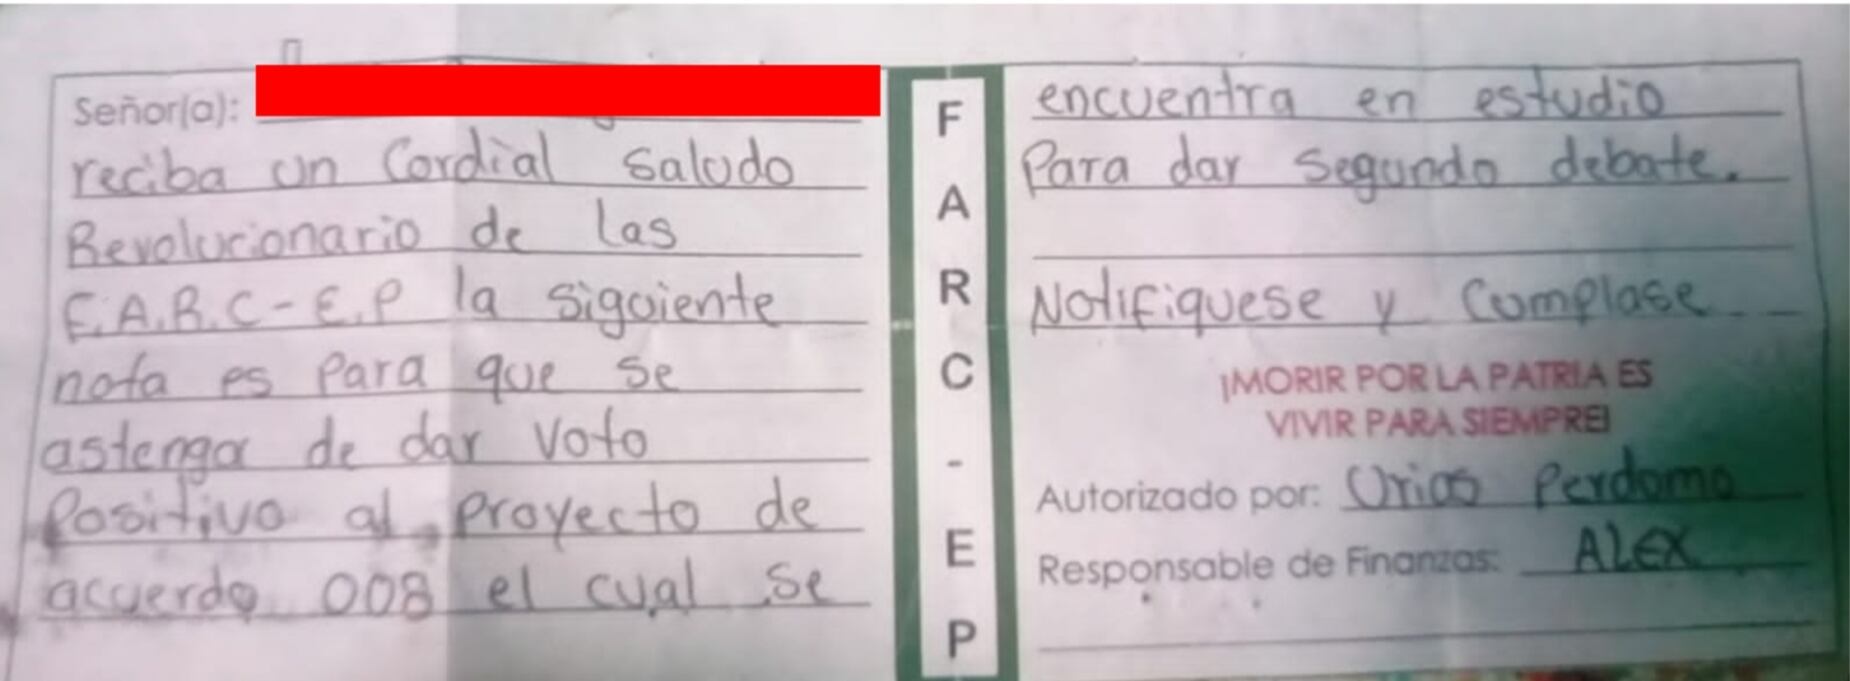 Señor(a):
reciba un Cordial Saludo
Revolucionario de las
F.A.R.C-E.P la siguiente
nota es para que se
astenga de dar voto
Positivo al proyecto de
acuerdo 008 el cual se
F
A
R
C
-
E
P
encuentra en estudio
Para dar segundo debate.
Notifiquese y Cumplase
¡MORIR POR LA PATRIA ES
VIVIR PARA SIEMPRE!
Autorizado por: Urias Perdomo
Responsable de Finanzas: ALEX